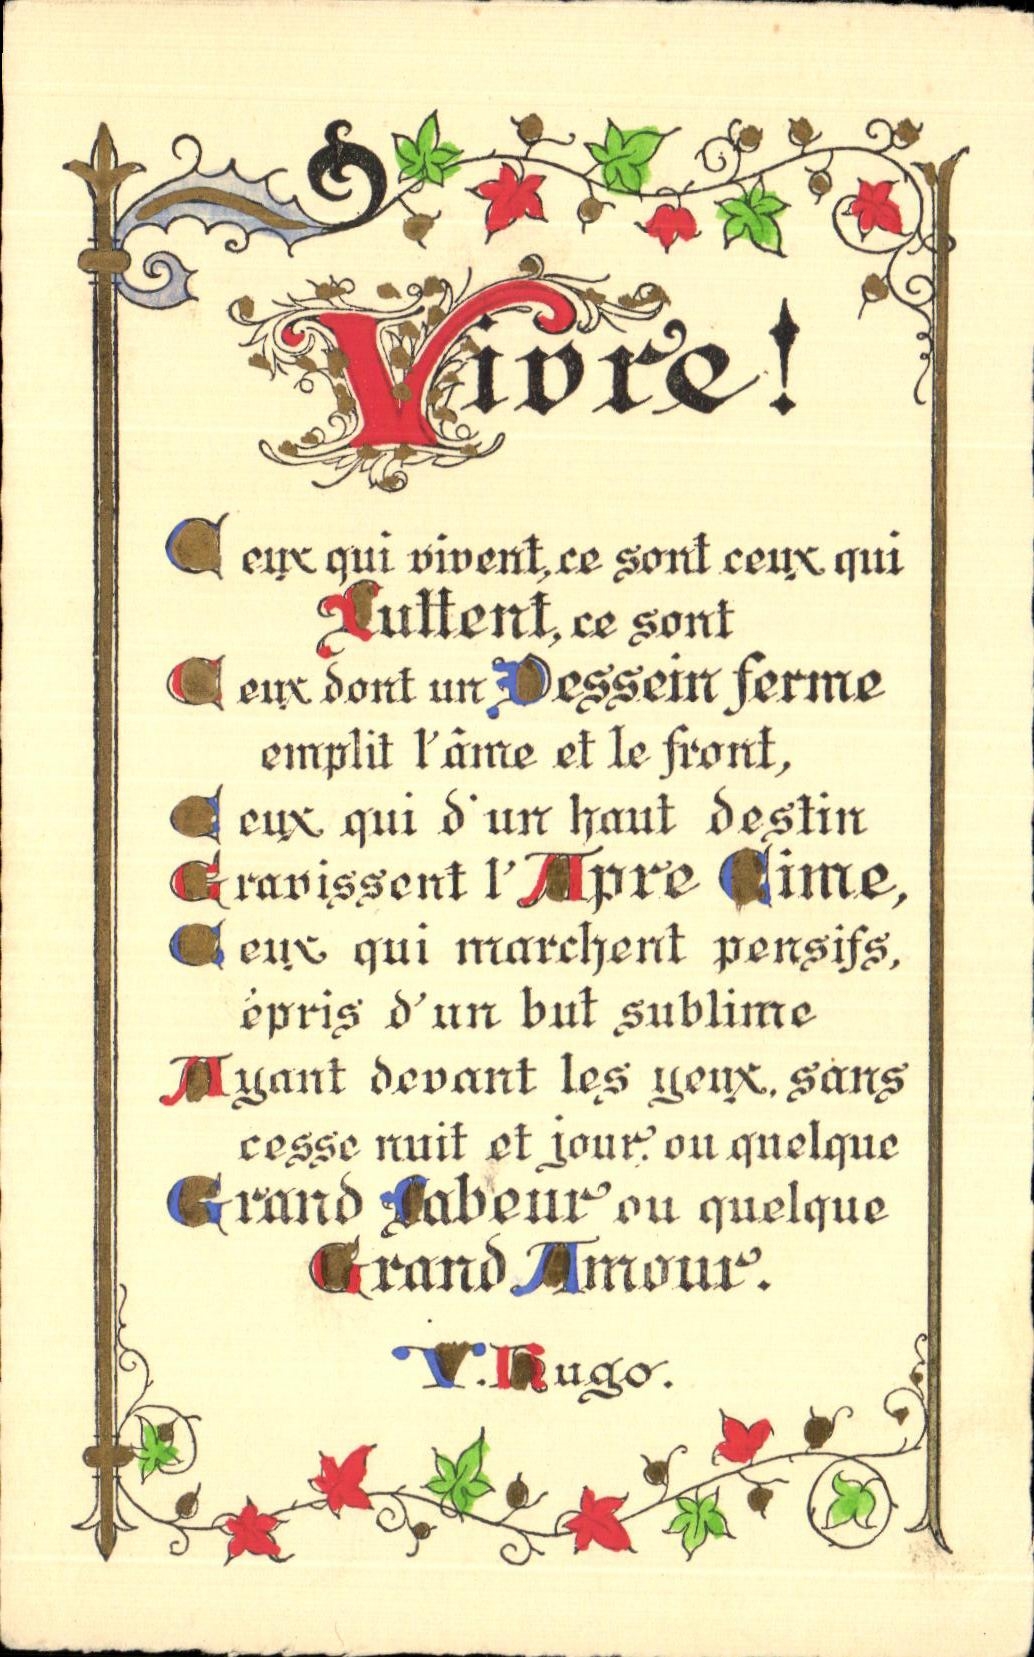 Vivre!
Ceux qui vivent, ce sont ceux qui
Luttent, ce sont
Ceux dont un Dessein ferme
emplit l'âme et le front,
Ceux qui d'un haut destin
Gravissent l'Apre Cime,
Ceux qui marchent pensifs,
épris d'un but sublime
Ayant devant les yeux, sans
cesse nuit et jour, ou quelque
Grand Labeur ou quelque
Grand Amour.
V. Hugo.